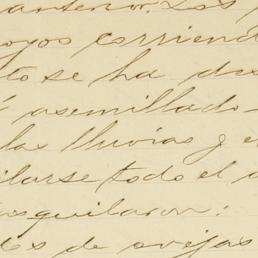 anterior. Los
oyos corriend
to se ha des
asemillado
las lluvias y e
ilarse todo el
asquilaron:
des de ovejas